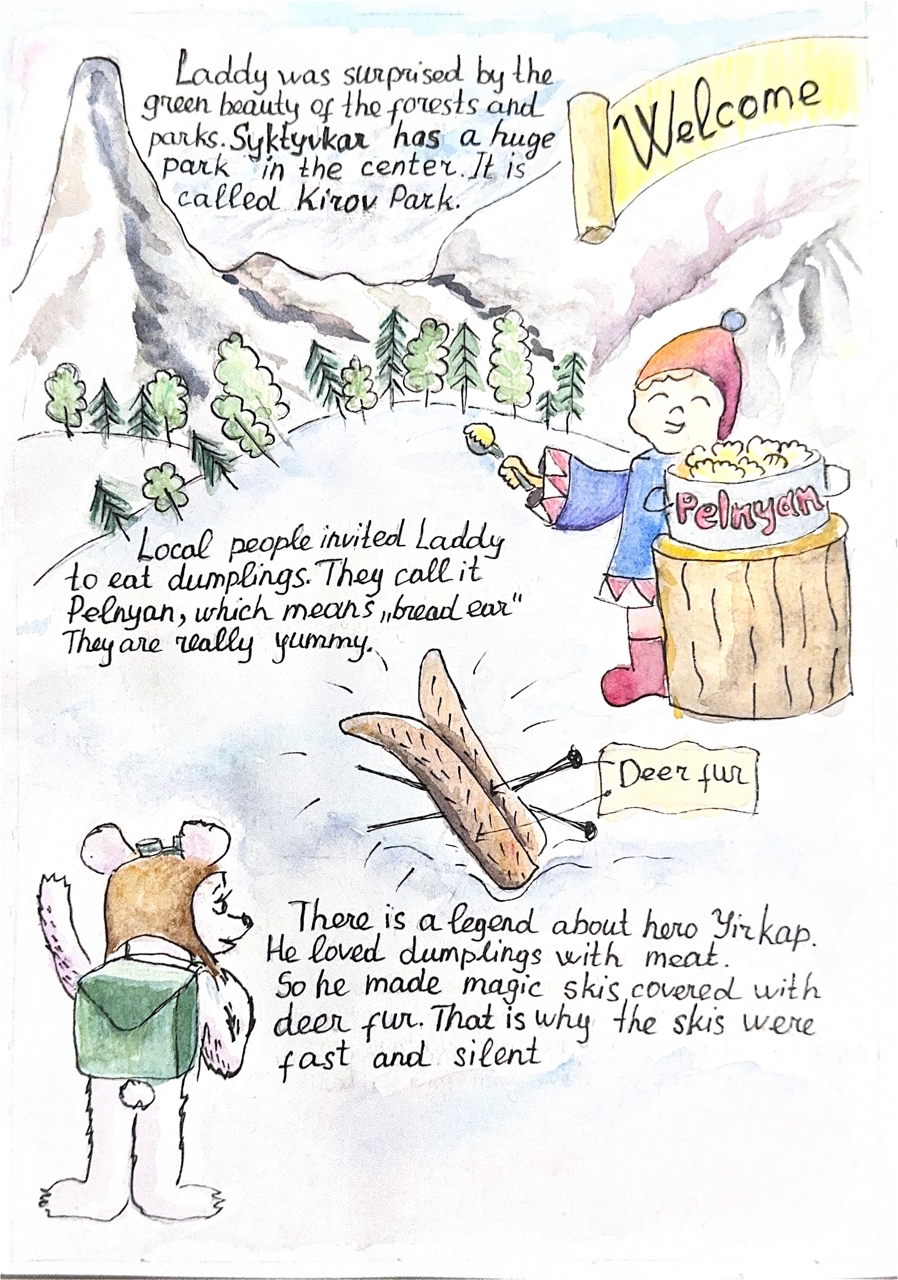 Laddy was surprised by the
green beauty of the forests and
parks. Syktyvkar has a huge
park in the center. It is
called Kirov Park.
Welcome
Pelnyan
Local people invited Laddy
to eat dumplings. They call it
Pelnyan, which means „bread ear"
They are really yummy.
Deer fur
There is a legend about hero Yirkap.
He loved dumplings with meat.
So he made magic skis, covered with
deer fur. That is why the skis were
fast and silent